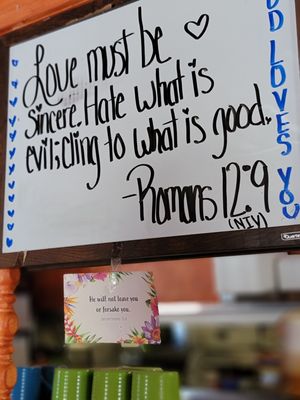 Love must be
sincere. Hate what is
evil; cling to what is good.
-Romans 12:9
(NIV)
D LOVES YOU
He will not leave you
or forsake you.